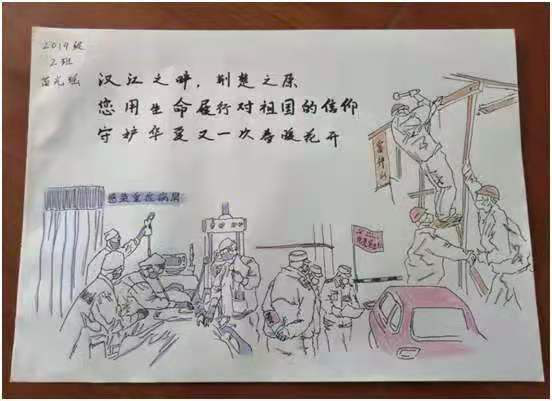 2019级
2班
汉江之畔，荆楚之原
您用生命履行对祖国的信仰
守护华夏又一次春暖花开
感染重症病房